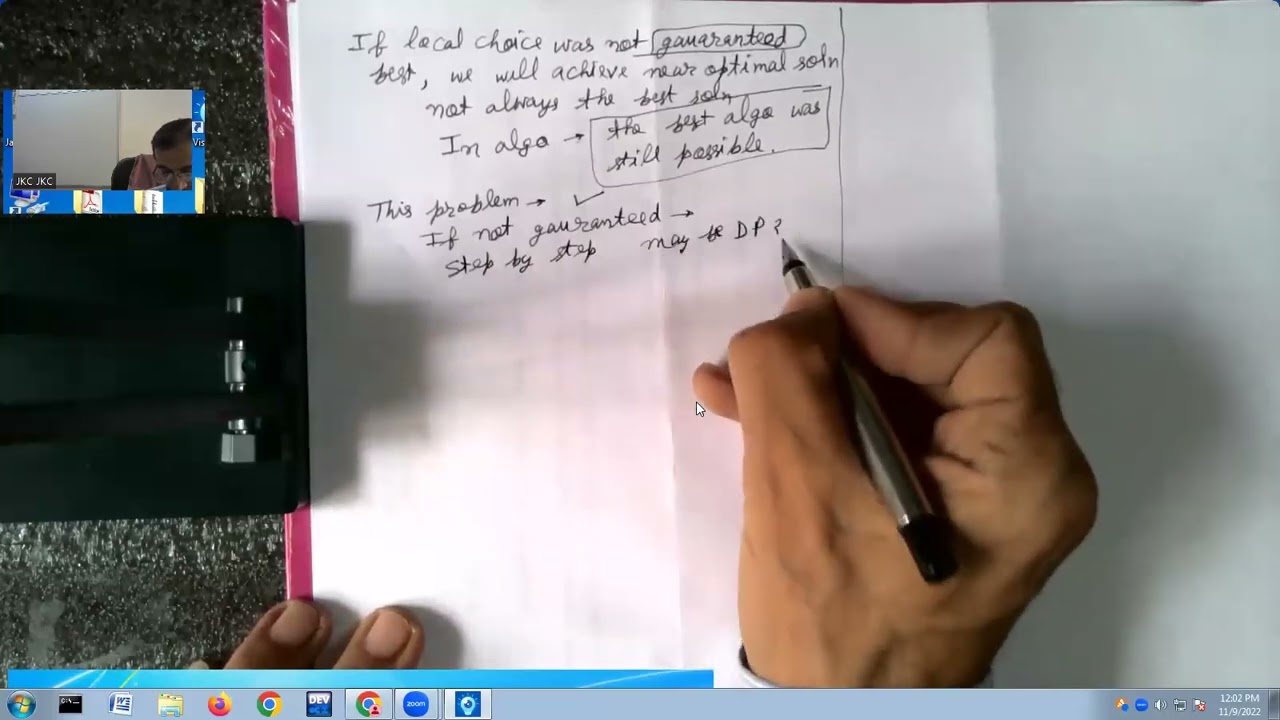 If local choice was not gauaranteed
best, we will achieve near optimal soln
not always the best soln
In algo → the best algo was
still possible.
This problem → ✓
If not gauranteed →
step by step may be DP ?
Ja
Vis
JKC JKC
DEV
zoom
12:02 PM
11/9/2022